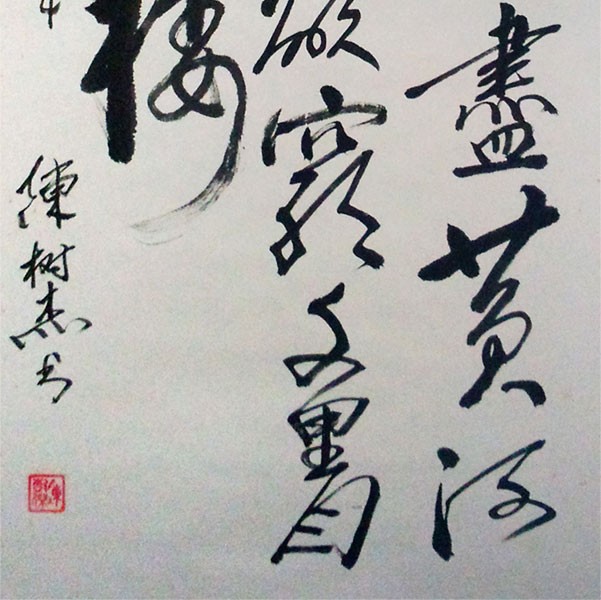 盡黃河
欲窮千里目
樓
陳树杰书